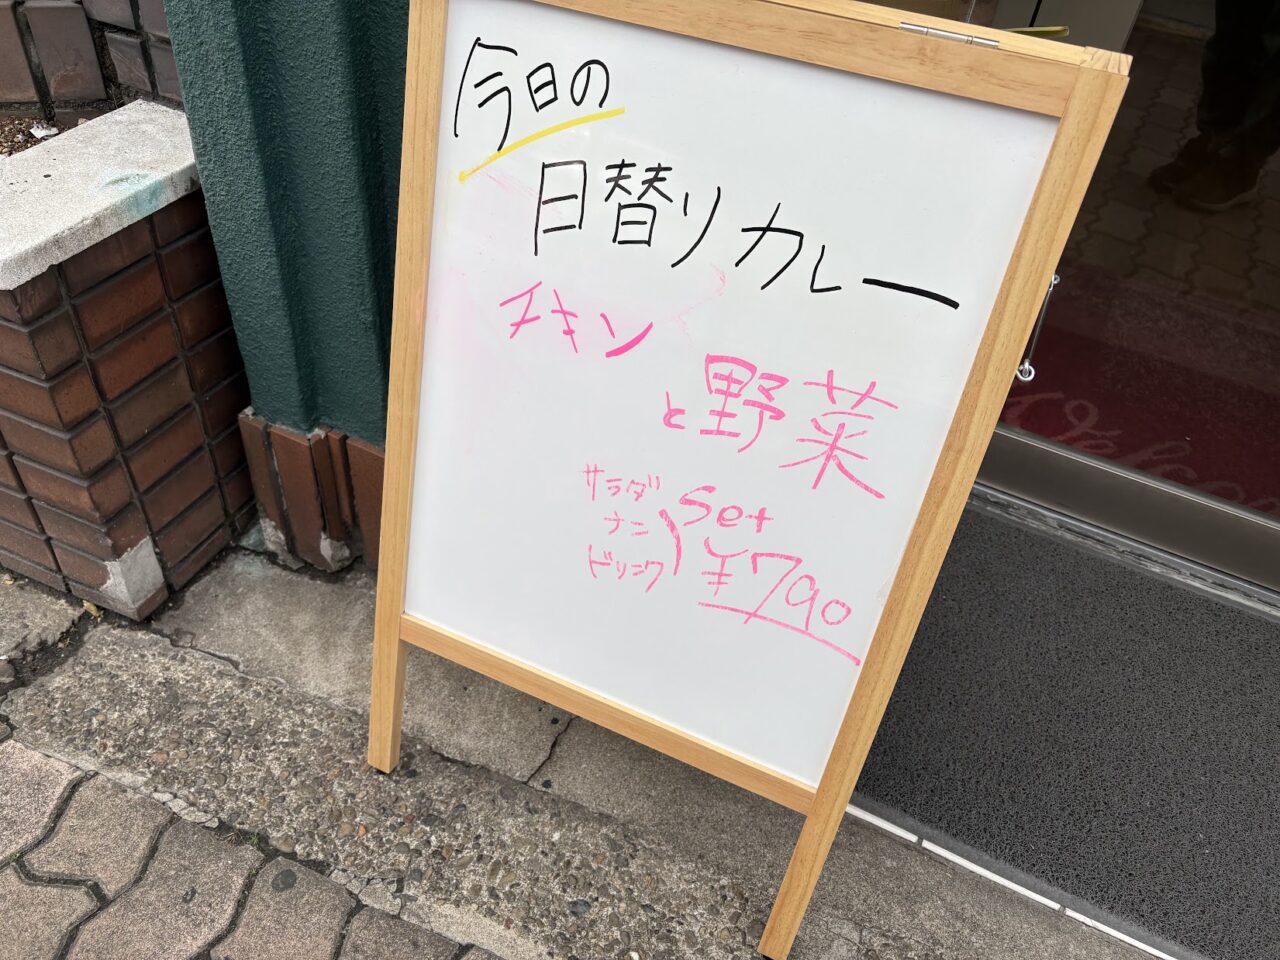 今日の
日替りカレー
チキン
と野菜
サラダ
ナン
ドリンク
set
¥790